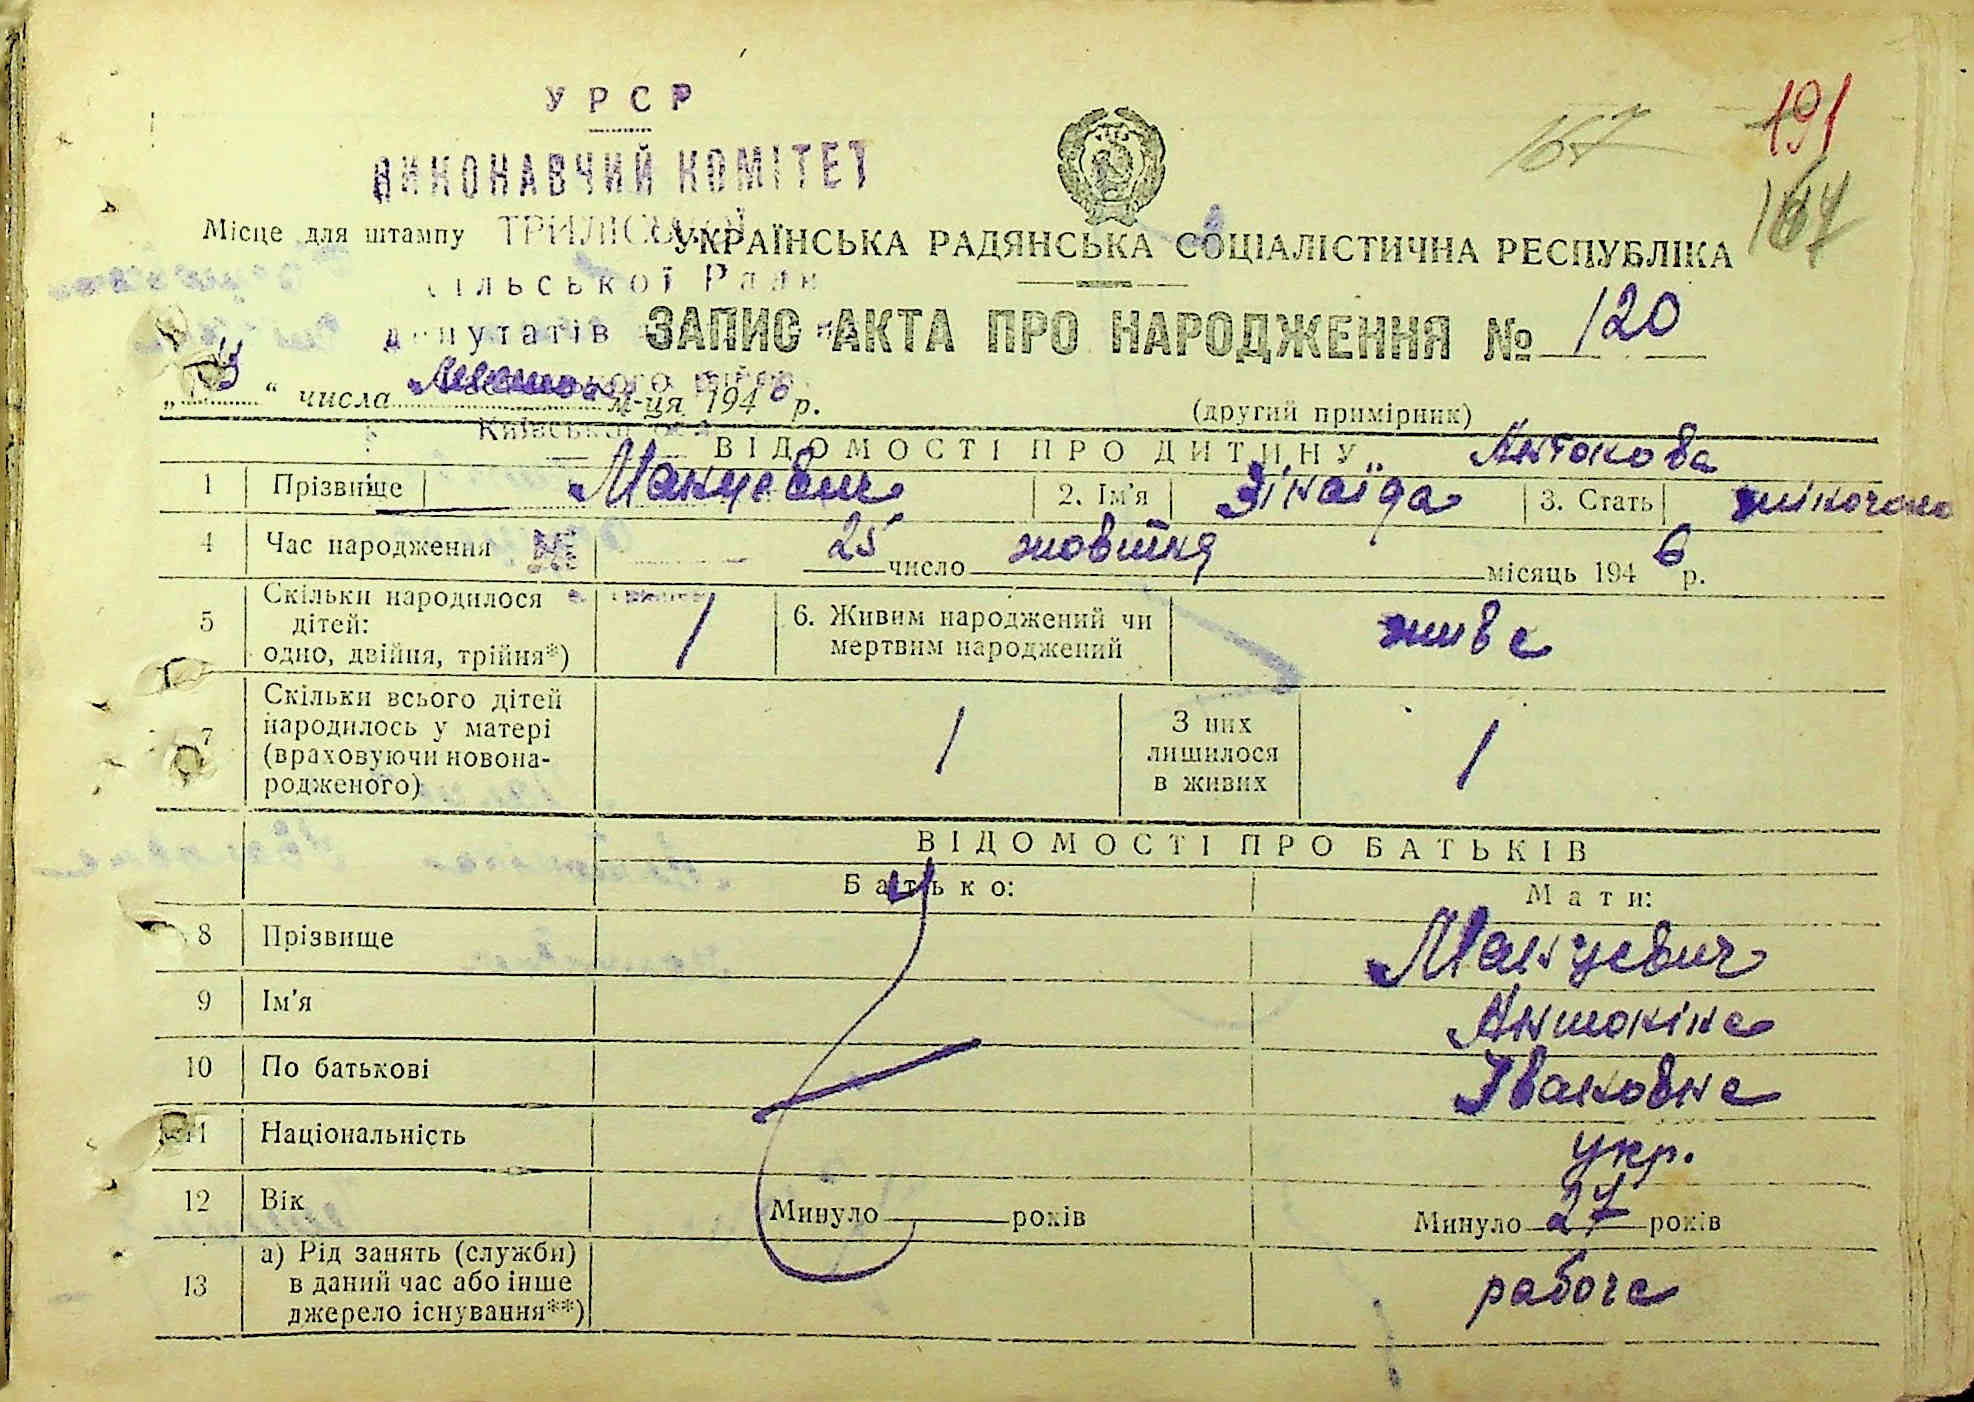 УРСР
ВИКОНАВЧИЙ КОМІТЕТ
167 191
164
Місце для штампу ТРИЛІСЬКОЇ УКРАЇНСЬКА РАДЯНСЬКА СОЦІАЛІСТИЧНА РЕСПУБЛІКА
СІЛЬСЬКОЇ Ради
депутатів ЗАПИС АКТА ПРО НАРОДЖЕННЯ № 120
" числа м-ця 1946 р.
(другий примірник)
Київської обл.
ВІДОМОСТІ ПРО ДИТИНУ Антоновна
1 Прізвище Манцевич 2. Ім'я Зінаїда 3. Стать жіноча
4 Час народження 25 число жовтня місяць 1946 р.
5 Скільки народилося дітей: одно, двійня, трійня*) 1 6. Живим народжений чи мертвим народжений живе
7 Скільки всього дітей народилось у матері (враховуючи новонародженого) 1 З них лишилося в живих 1
ВІДОМОСТІ ПРО БАТЬКІВ
Батько: Мати:
8 Прізвище Манцевич
9 Ім'я Антоніна
10 По батькові Івановна
11 Національність укр.
12 Вік Минуло років Минуло 27 років
13 а) Рід занять (служби) в даний час або інше джерело існування**) рабоча